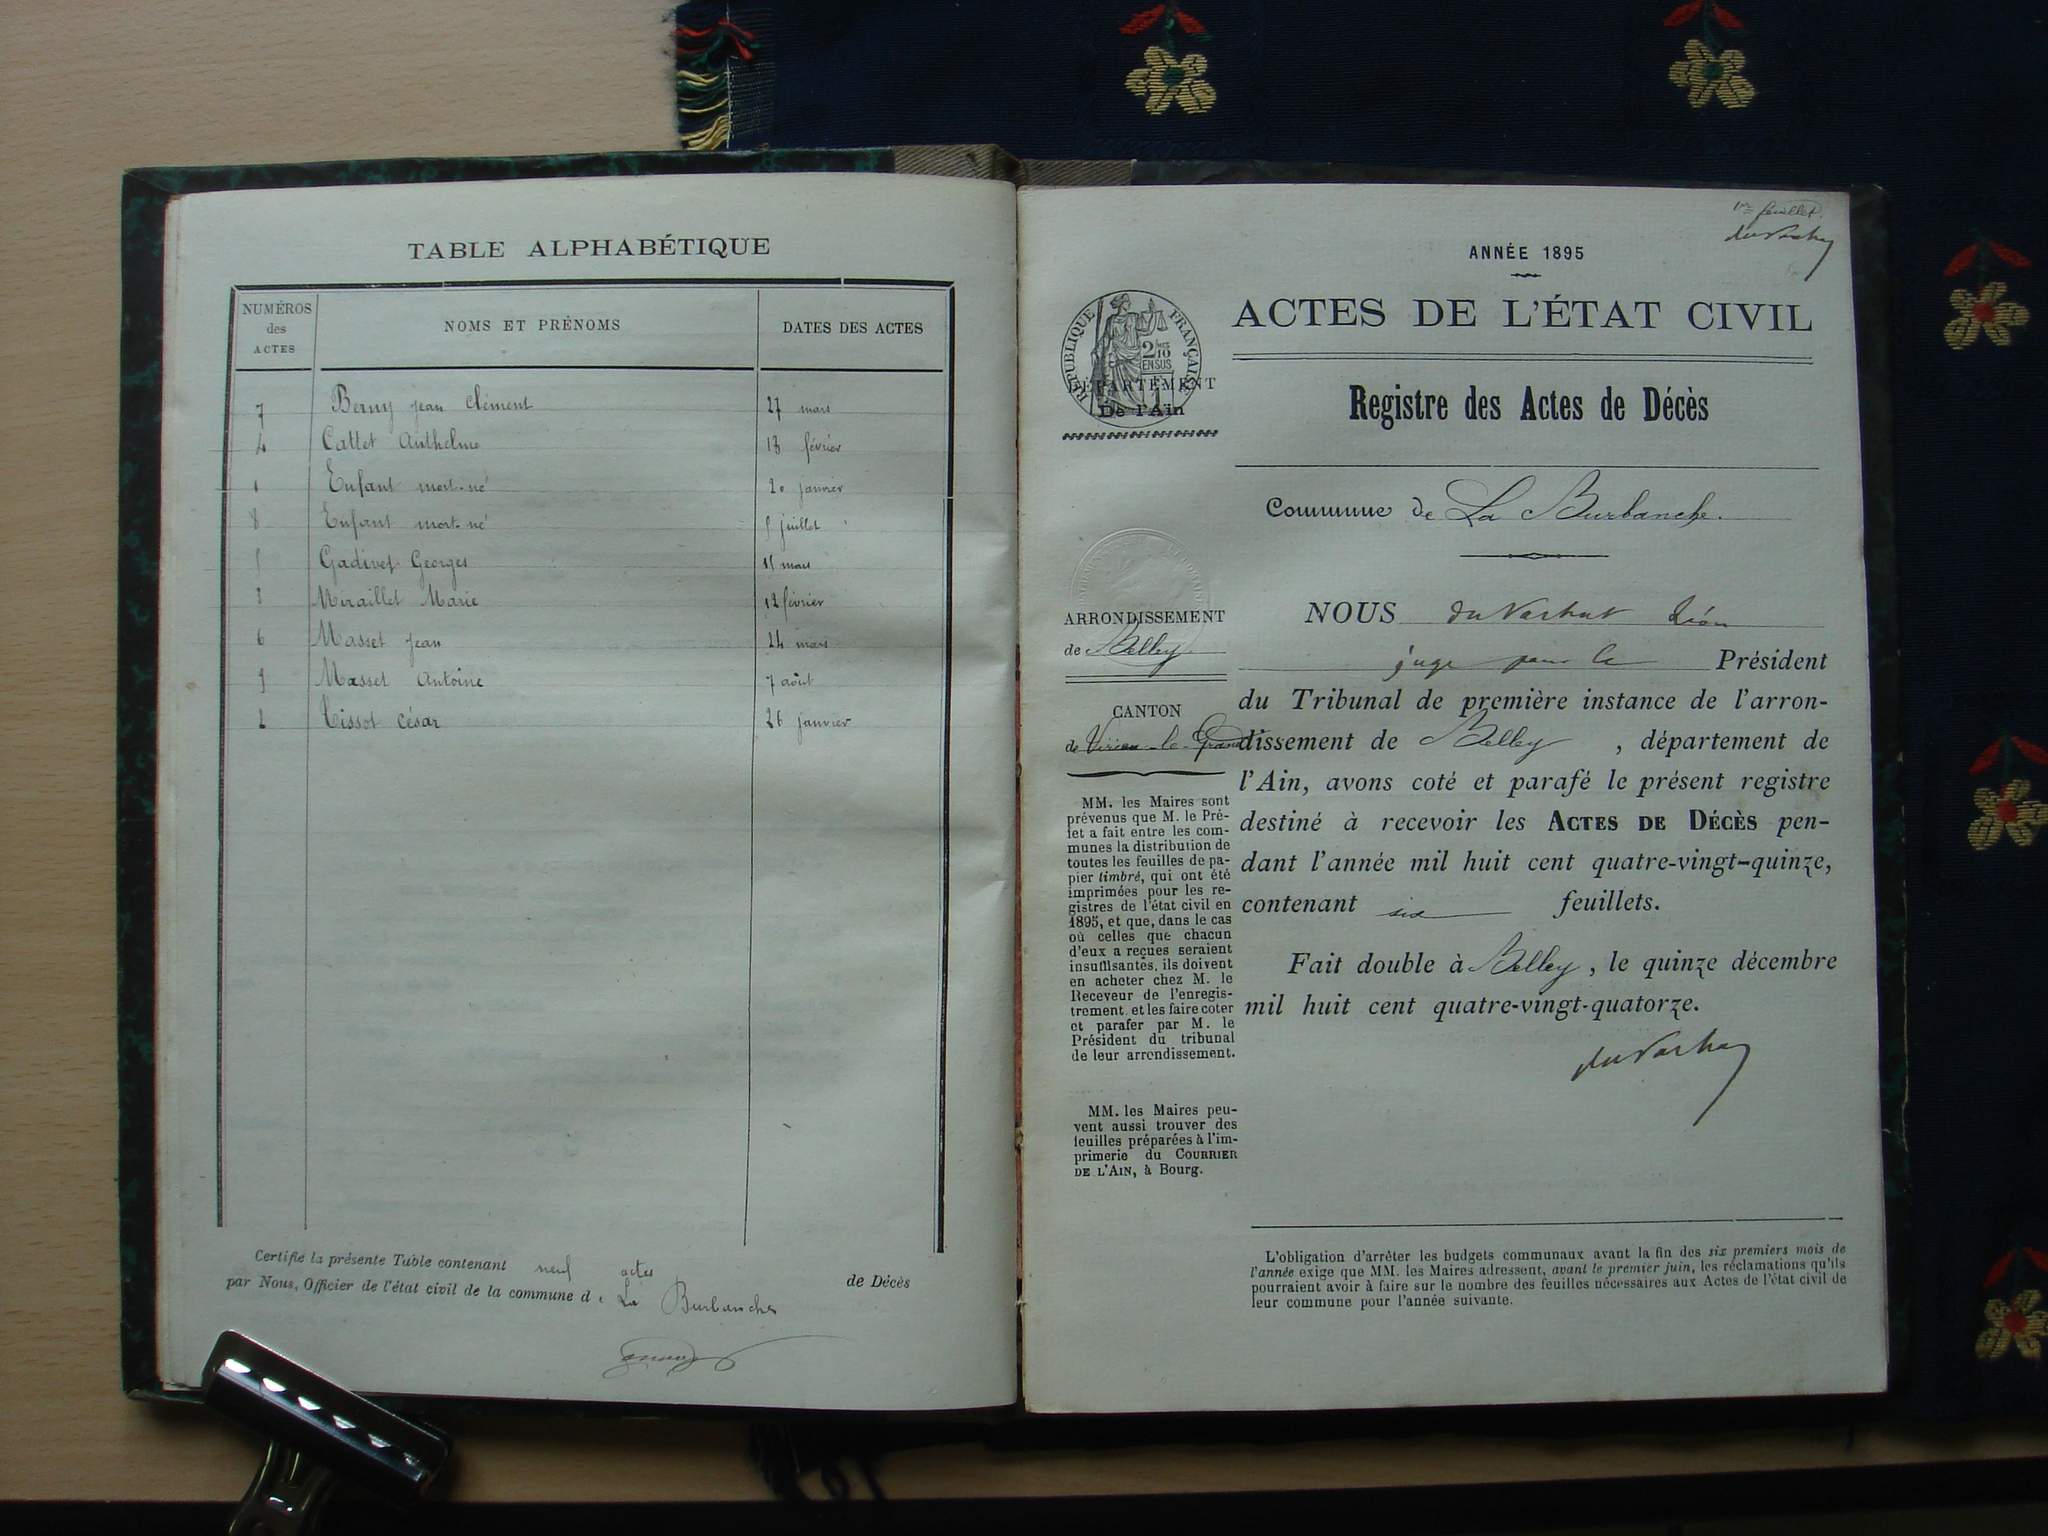 TABLE ALPHABÉTIQUE
NUMÉROS des ACTES NOMS ET PRÉNOMS DATES DES ACTES
7 Berny jean Clément 27 mars
4 Cattet Anthelme 13 février
1 Enfant mort-né 20 janvier
8 Enfant mort-né 5 juillet
5 Gadivet Georges 15 mars
3 Miraillet Marie 12 février
6 Masset jean 24 mars
9 Masset Antoine 7 août
2 Tissot César 26 janvier
Certifie la présente Table contenant neuf actes de Décès
par Nous, Officier de l'état civil de la commune de La Burbanche
1er feuillet.
ANNÉE 1895
ACTES DE L'ÉTAT CIVIL
RÉPUBLIQUE FRANÇAISE
2 fres
10
EN SUS
DÉPARTEMENT
De l'Ain
Registre des Actes de Décès
Commune de La Burbanche.
ARRONDISSEMENT
de Belley
CANTON
de Virieu-le-Grand
MM. les Maires sont
prévenus que M. le Pré-
fet a fait entre les com-
munes la distribution de
toutes les feuilles de pa-
pier timbré, qui ont été
imprimées pour les re-
gistres de l'état civil en
1895, et que, dans le cas
où celles que chacun
d'eux a reçues seraient
insuffisantes, ils doivent
en acheter chez M. le
Receveur de l'enregis-
trement et les faire coter
et parafer par M. le
Président du tribunal
de leur arrondissement.
MM. les Maires peu-
vent aussi trouver des
feuilles préparées à l'im-
primerie du COURRIER
DE L'AIN, à Bourg.
NOUS Léon
juge pour le Président
du Tribunal de première instance de l'arron-
dissement de Belley, département de
l'Ain, avons coté et parafé le présent registre
destiné à recevoir les ACTES DE DÉCÈS pen-
dant l'année mil huit cent quatre-vingt-quinze,
contenant six feuillets.
Fait double à Belley, le quinze décembre
mil huit cent quatre-vingt-quatorze.
L'obligation d'arrêter les budgets communaux avant la fin des six premiers mois de
l'année exige que MM. les Maires adressent, avant le premier juin, les réclamations qu'ils
pourraient avoir à faire sur le nombre des feuilles nécessaires aux Actes de l'état civil de
leur commune pour l'année suivante.